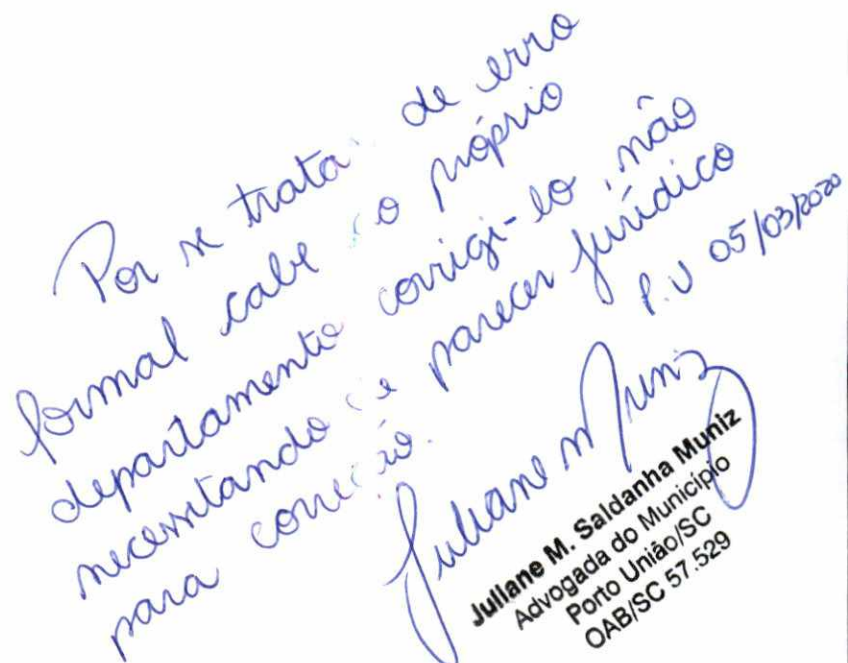 Por se tratar de erro
formal cabe ao próprio
departamento corrigi-lo, não
necessitando de parecer jurídico
para correção.
P.U 05/03/2020
Juliane M Muniz
Juliane M. Saldanha Muniz
Advogada do Município
Porto União/SC
OAB/SC 57.529